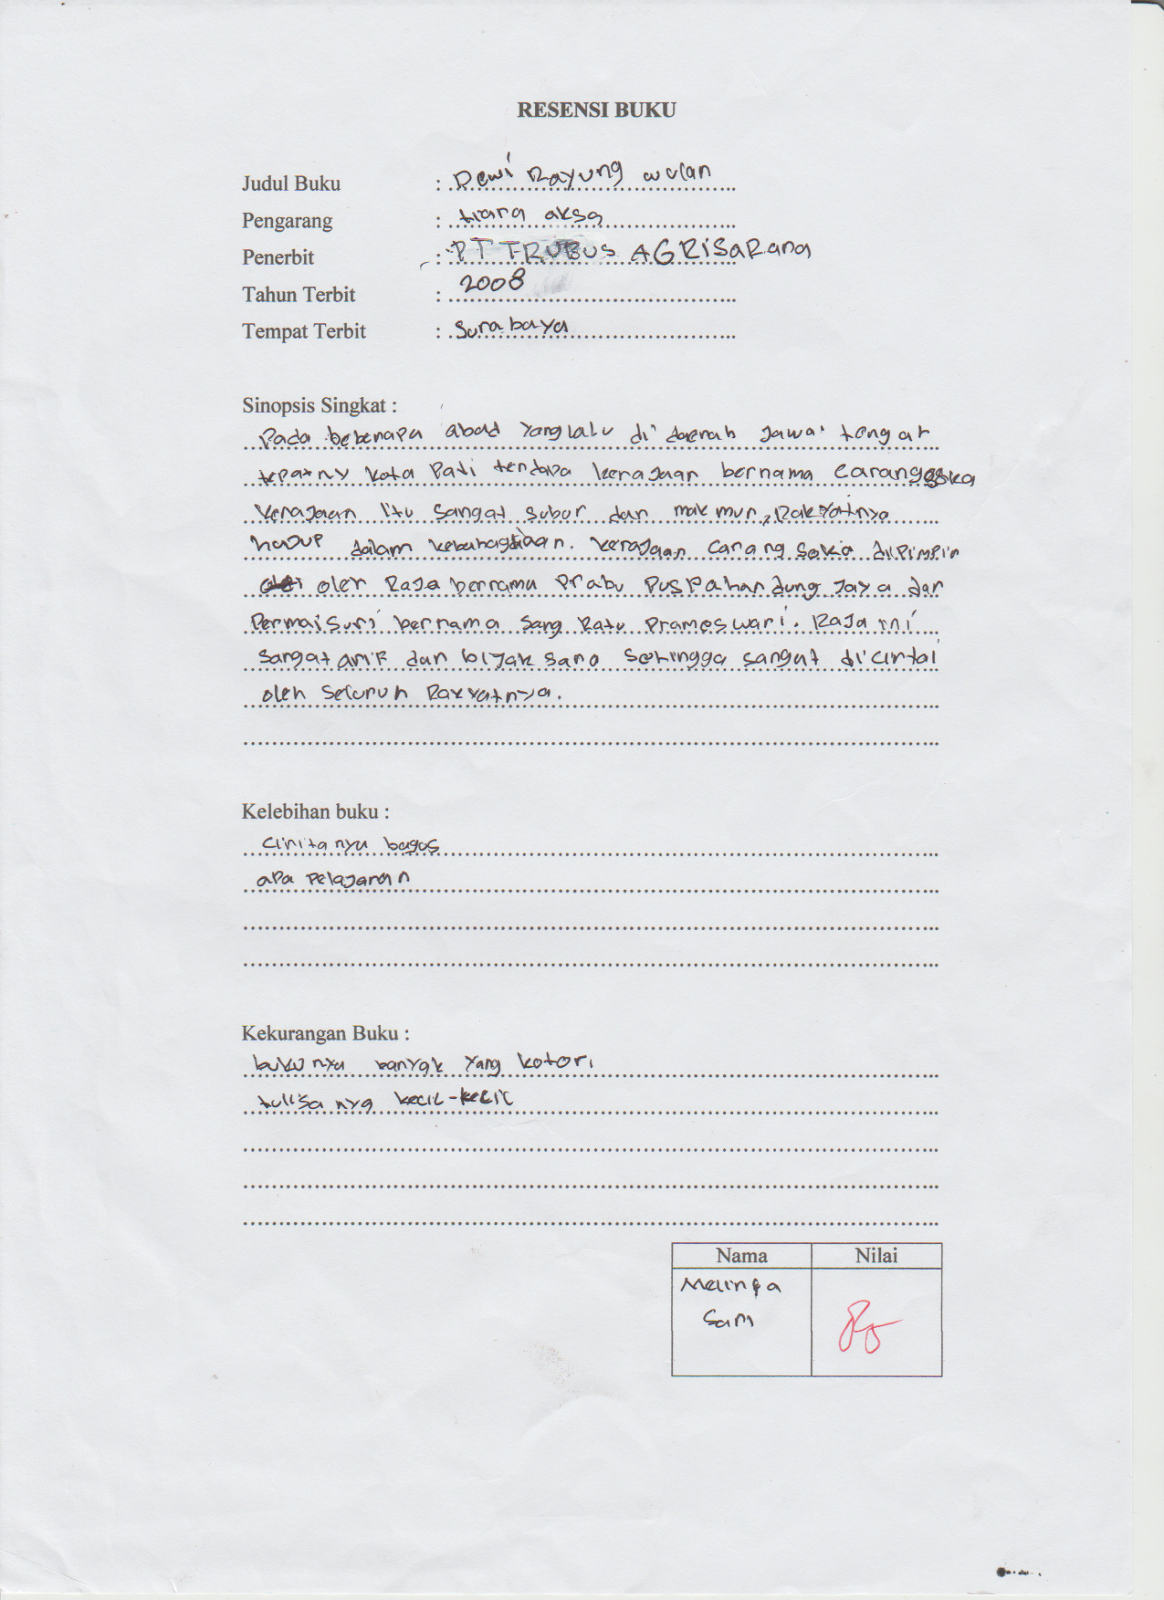 RESENSI BUKU
Judul Buku : Dewi Rayung wulan
Pengarang : tiara aksa
Penerbit : PT TRUBUS AGRISaRana
Tahun Terbit : 2008
Tempat Terbit : Surabaya
Sinopsis Singkat :
Pada beberapa abad yang lalu di daerah Jawa tengah
tepatny kota Pati terdapa kerajaan bernama Carangsoka
kerajaan itu sangat subur dan makmur, Rakyatnya
hidup dalam kebahagiaan. kerajaan Carang soka diPimPin
oleh Raja bernama Prabu PusPahandung Jaya dan
Permaisuri bernama Sang Ratu Prameswari. Raja ini
sangat arif dan bijak sana sehingga sangat di cintai
oleh seluruh Rakyatnya.
Kelebihan buku :
ciritanya bagus
apa Pelajaran
Kekurangan Buku :
bukunya banyak yang kotori
tulisanya kecil-kecil
Nama Nilai
Sari